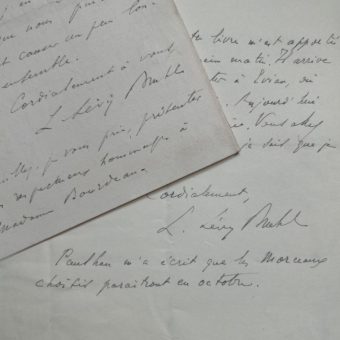 que nous puis
et causer un peu lon-
ensemble.
Cordialement à vous
L. Lévy Bruhl
je vous prie, présenter
respectueux hommages à
Madame Bourdeau.
livre m'est apporté
matin. Il arrive
à Evian, où
Aujourd'hui
Vous
je sais que je
Cordialement,
L. Lévy Bruhl
Paulhan m'a écrit que les Morceaux
choisis paraîtront en octobre.